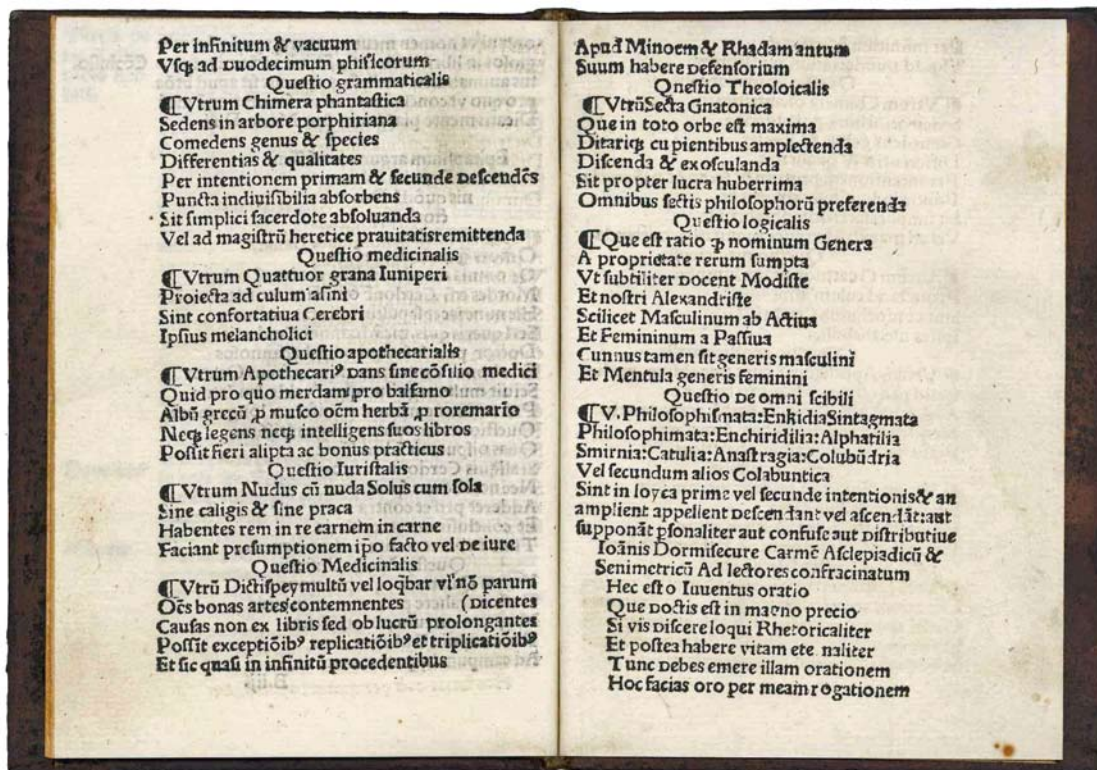 Per infinitum & vacuum
Vsqꝫ ad duodecimum phisicorum
Questio grammaticalis
¶Vtrum Chimera phantastica
Sedens in arbore porphiriana
Comedens genus & species
Differentias & qualitates
Per intentionem primam & secunde descendẽs
Puncta indiuisibilia absorbens
Sit simplici sacerdote absoluanda
Vel ad magistrũ heretice prauitatisremittenda
Questio medicinalis
¶Vtrum Quattuor grana Iuniperi
Proiecta ad culum asini
Sint confortatiua Cerebri
Ipsius melancholici
Questio apothecarialis
¶Vtrum Apothecariꝰ dans sine cõsilio medici
Quid pro quo merdam pro balsamo
Albũ grecũ ꝑ musco oẽm herbã ꝑ roremario
Necqꝫ legens necqꝫ intelligens suos libros
Possit fieri alipta ac bonus practicus
Questio Iuristalis
¶Vtrum Nudus cũ nuda Solus cum sola
Sine caligis & sine praca
Habentes rem in re carnem in carne
Faciant presumptionem ip̃o facto vel de iure
Questio Medicinalis
¶Vtrũ Dictispey multũ vel loq̃bar vl' nõ parum
Oẽs bonas artes contemnentes (Dicentes
Causas non ex libris sed ob lucrũ prolongantes
Possit exceptiõibꝰ replicatiõibꝰ et triplicatiõibꝰ
Et sic quasi in infinitũ procedentibus
Apud Minoem & Rhadamantum
Suum habere defensorium
Qnestio Theoloicalis
¶VtrũSecta Gnatonica
Que in toto orbe est maxima
Ditariqꝫ cupientibus amplectenda
Discenda & exosculanda
Sit propter lucra huberrima
Omnibus sectis philosophorũ preferenda
Questio logicalis
¶Que est ratio ꝙ nominum Genera
A proprietate rerum sumpta
Vt subtiliter docent Modiste
Et nostri Alexandriste
Scilicet Masculinum ab Actiua
Et Femininum a Passiua
Cunnus tamen sit generis masculini
Et Mentula generis feminini
Questio de omni scibili
¶V. Philosophismata:EnkidiaSintagmata
Philosophimata:Enchiridilia:Alphatilia
Smirnia:Catulia:Anastragia:Colubũdria
Vel secundum alios Colabuntica
Sint in loyca prime vel secunde intentionis& an
amplient appellent descendant vel ascendãt:aut
supponãt ꝑsonaliter aut confuse aut distributiue
Ioãnis Dormisecure Carmẽ Asclepiadicũ &
Senimetricũ Ad lectores confracinatum
Hec est o Iuuentus oratio
Que doctis est in magno precio
Si vis discere loqui Rhetoricaliter
Et postea habere vitam ete naliter
Tunc debes emere illam orationem
Hoc facias oro per meam rogationem